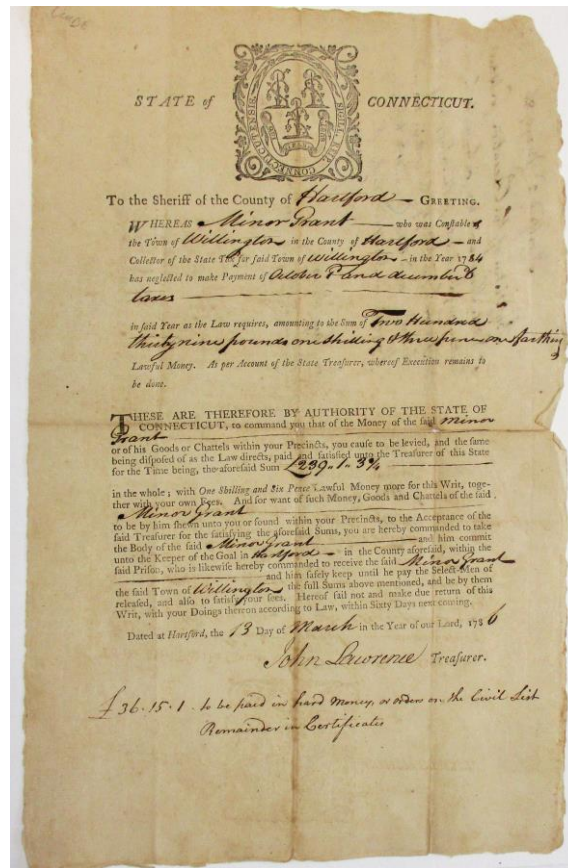 STATE of CONNECTICUT.
To the Sheriff of the County of Hartford — GREETING.
WHEREAS Minor Grant — who was Constable of
the Town of Willington in the County of Hartford — and
Collector of the State Tax for said Town of Willington — in the Year 1784
has neglected to make Payment of October and decembr
taxes
in said Year as the Law requires, amounting to the Sum of Two Hundred
thirty nine pounds one shilling & three pence one farthing
Lawful Money. As per Account of the State Treasurer, whereof Execution remains to
be done.
THESE ARE THEREFORE BY AUTHORITY OF THE STATE OF
CONNECTICUT, to command you that of the Money of the said minor
Grant
or of his Goods or Chattels within your Precincts, you cause to be levied, and the same
being disposed of as the Law directs, paid and satisfied unto the Treasurer of this State
for the Time being, the aforesaid Sum £239.. 1.. 3¼
in the whole; with One Shilling and Six Pence Lawful Money more for this Writ, toge-
ther with your own Fees. And for want of such Money, Goods and Chattels of the said
Minor Grant
to be by him shewn unto you or found within your Precincts, to the Acceptance of the
said Treasurer for the satisfying the aforesaid Sums, you are hereby commanded to take
the Body of the said Minor Grant — and him commit
unto the Keeper of the Goal in Hartford — in the County aforesaid, within the
said Prison, who is likewise hereby commanded to receive the said Minor Grant
and him safely keep until he pay the Select-Men of
the said Town of Willington the full Sums above mentioned, and be by them
released, and also to satisfy your fees. Hereof fail not and make due return of this
Writ, with your Doings thereon according to Law, within Sixty Days next coming.
Dated at Hartford, the 13 Day of March in the Year of our Lord, 1786
John Lawrence Treasurer.
£36.15.1. to be paid in hard Money, or orders on the Civil List
Remainder in Certificates